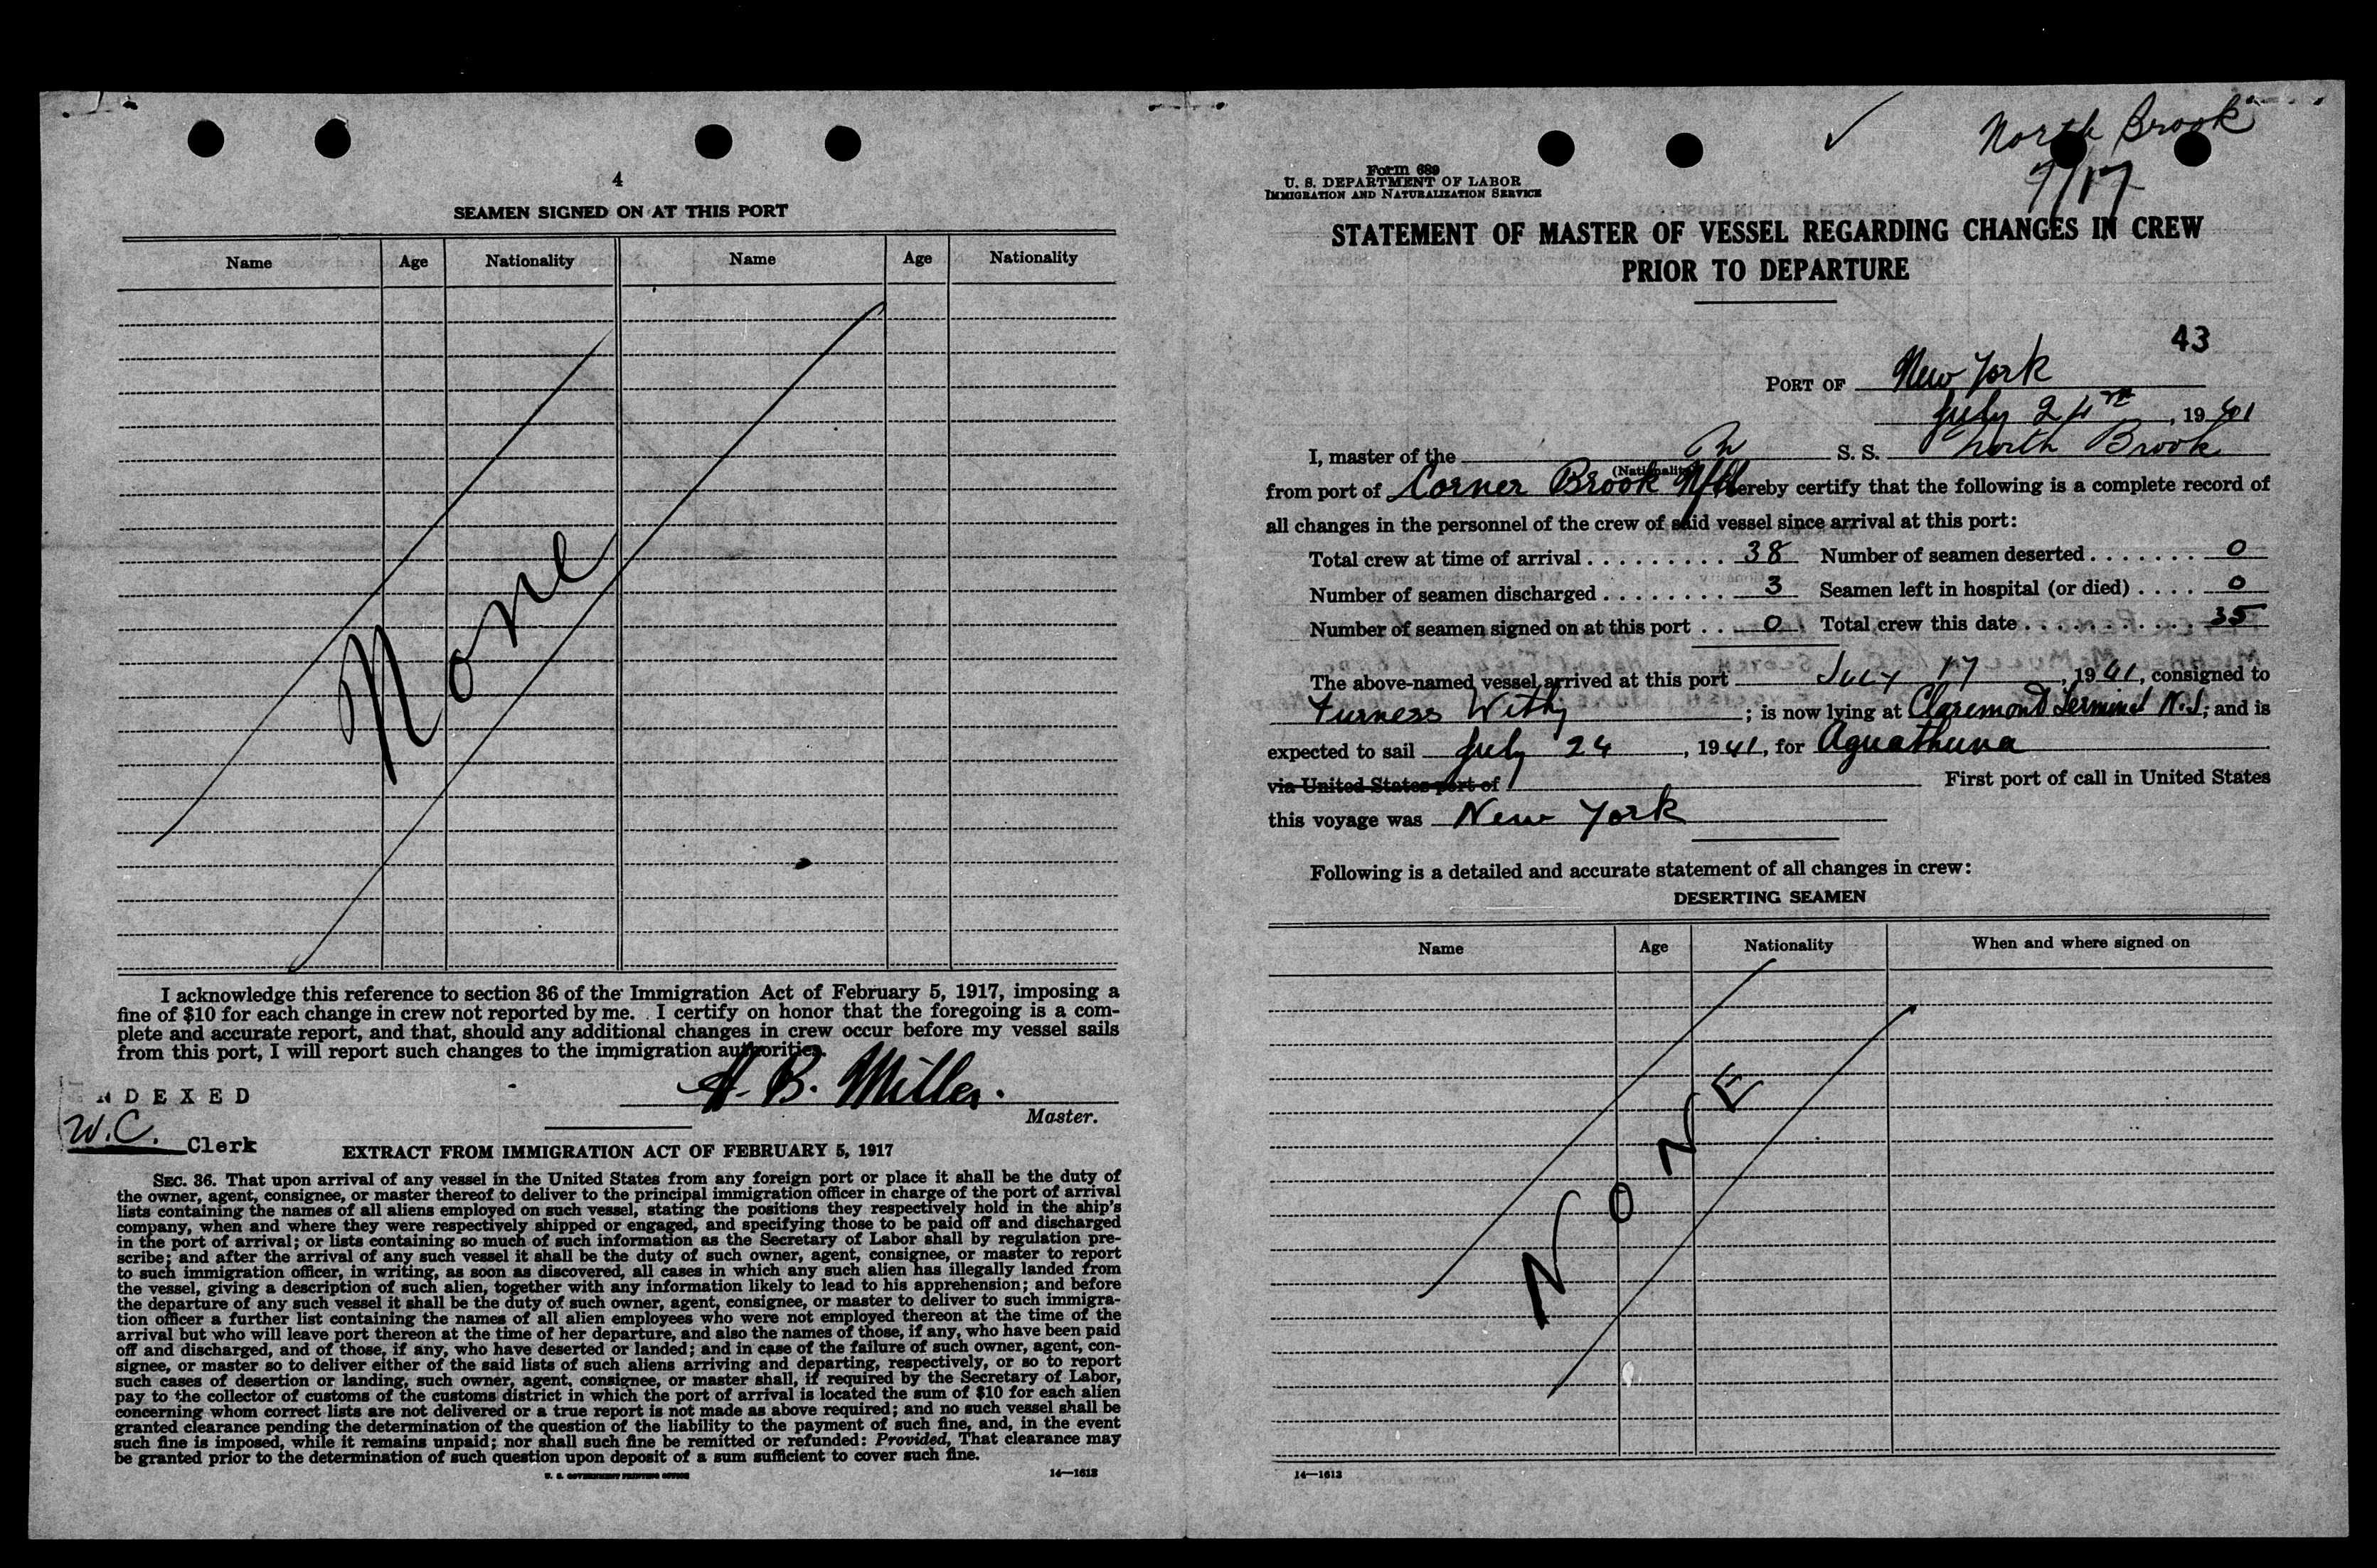 4
SEAMEN SIGNED ON AT THIS PORT
Name Age Nationality Name Age Nationality
None
I acknowledge this reference to section 36 of the Immigration Act of February 5, 1917, imposing a
fine of $10 for each change in crew not reported by me. I certify on honor that the foregoing is a com-
plete and accurate report, and that, should any additional changes in crew occur before my vessel sails
from this port, I will report such changes to the immigration authorities.
H. B. Miller.
Master.
INDEXED
W.C. Clerk
EXTRACT FROM IMMIGRATION ACT OF FEBRUARY 5, 1917
SEC. 36. That upon arrival of any vessel in the United States from any foreign port or place it shall be the duty of
the owner, agent, consignee, or master thereof to deliver to the principal immigration officer in charge of the port of arrival
lists containing the names of all aliens employed on such vessel, stating the positions they respectively hold in the ship's
company, when and where they were respectively shipped or engaged, and specifying those to be paid off and discharged
in the port of arrival; or lists containing so much of such information as the Secretary of Labor shall by regulation pre-
scribe; and after the arrival of any such vessel it shall be the duty of such owner, agent, consignee, or master to report
to such immigration officer, in writing, as soon as discovered, all cases in which any such alien has illegally landed from
the vessel, giving a description of such alien, together with any information likely to lead to his apprehension; and before
the departure of any such vessel it shall be the duty of such owner, agent, consignee, or master to deliver to such immigra-
tion officer a further list containing the names of all alien employees who were not employed thereon at the time of the
arrival but who will leave port thereon at the time of her departure, and also the names of those, if any, who have been paid
off and discharged, and of those, if any, who have deserted or landed; and in case of the failure of such owner, agent, con-
signee, or master so to deliver either of the said lists of such aliens arriving and departing, respectively, or so to report
such cases of desertion or landing, such owner, agent, consignee, or master shall, if required by the Secretary of Labor,
pay to the collector of customs of the customs district in which the port of arrival is located the sum of $10 for each alien
concerning whom correct lists are not delivered or a true report is not made as above required; and no such vessel shall be
granted clearance pending the determination of the question of the liability to the payment of such fine, and, in the event
such fine is imposed, while it remains unpaid; nor shall such fine be remitted or refunded: Provided, That clearance may
be granted prior to the determination of such question upon deposit of a sum sufficient to cover such fine.
U. S. GOVERNMENT PRINTING OFFICE 14—1613
North Brook
7/17
Form 689
U. S. DEPARTMENT OF LABOR
IMMIGRATION AND NATURALIZATION SERVICE
STATEMENT OF MASTER OF VESSEL REGARDING CHANGES IN CREW
PRIOR TO DEPARTURE
43
PORT OF New York
July 24th, 1941
I, master of the S. S. North Brook
(Nationality)
from port of Corner Brook Nfld hereby certify that the following is a complete record of
all changes in the personnel of the crew of said vessel since arrival at this port:
Total crew at time of arrival 38 Number of seamen deserted 0
Number of seamen discharged 3 Seamen left in hospital (or died) 0
Number of seamen signed on at this port 0 Total crew this date 35
The above-named vessel arrived at this port July 17, 1941, consigned to
Furness Withy; is now lying at Claremont Terminal N.J; and is
expected to sail July 24, 1941, for Aguathuna
via United States port of First port of call in United States
this voyage was New York
Following is a detailed and accurate statement of all changes in crew:
DESERTING SEAMEN
Name Age Nationality When and where signed on
NONE
14—1613